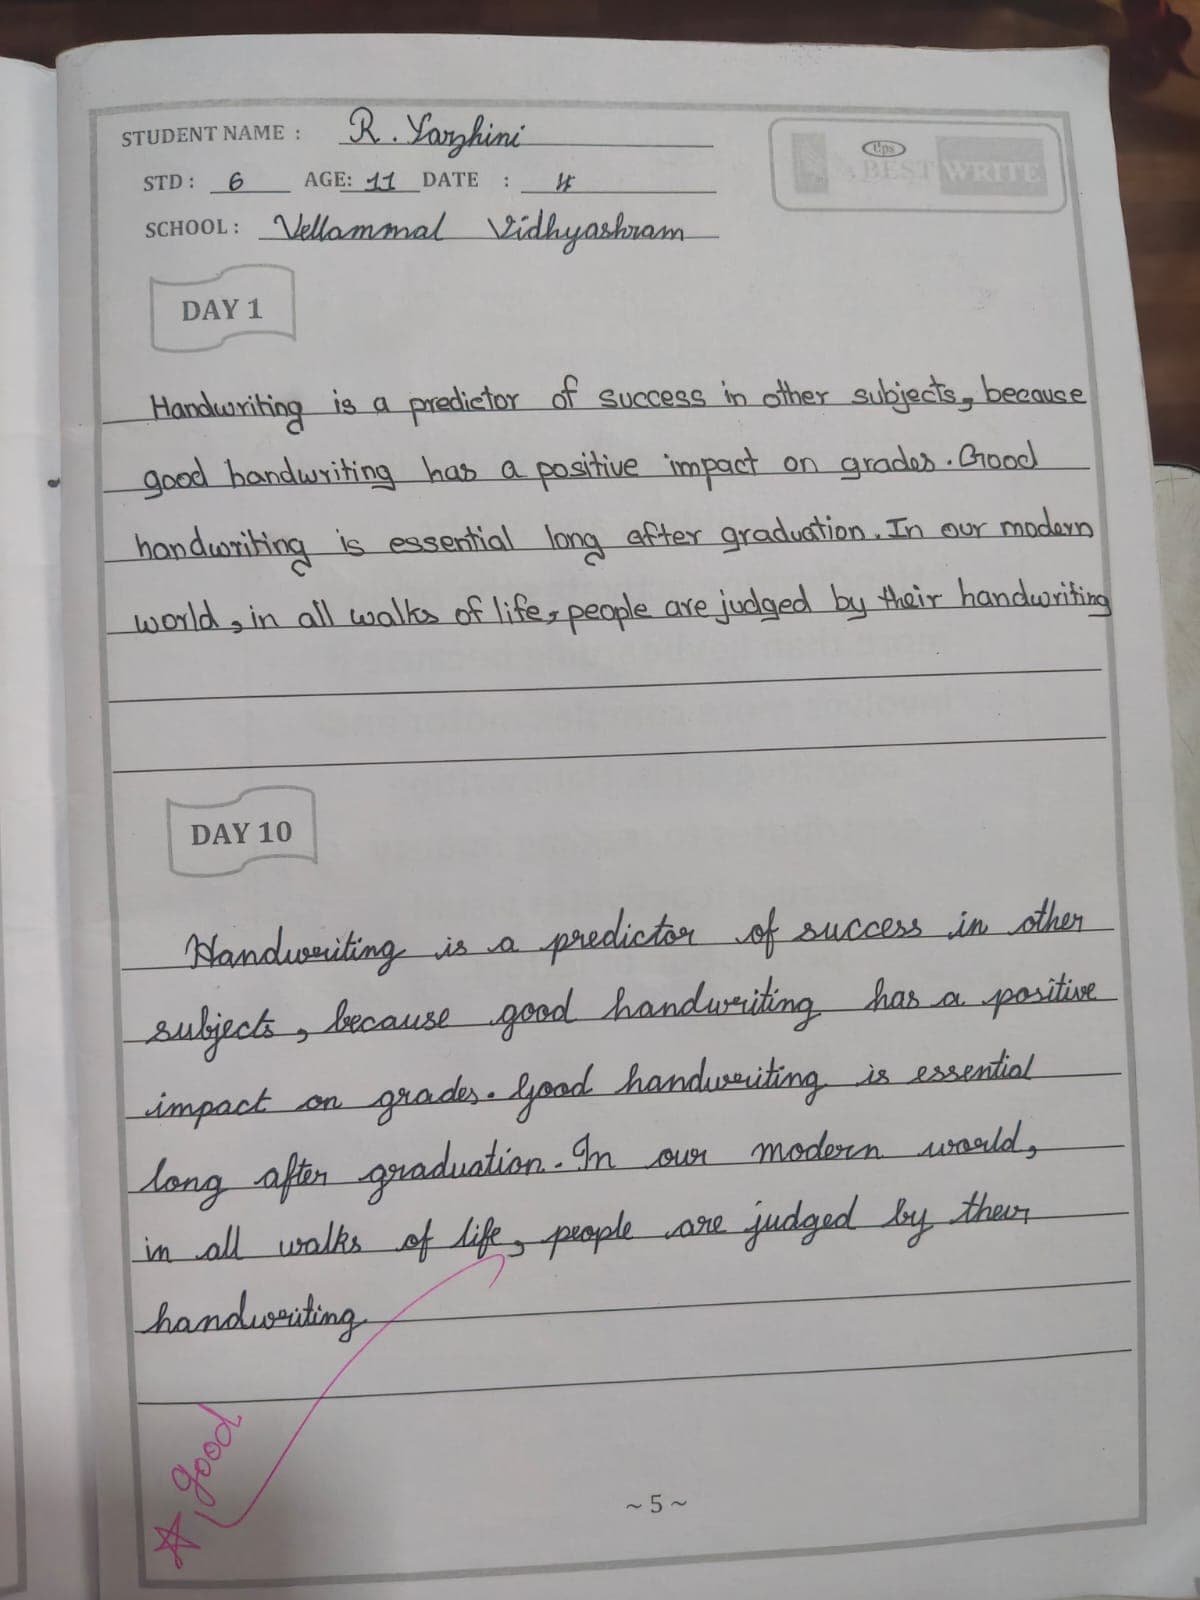 STUDENT NAME : R. Yarzhini
STD : 6 AGE: 11 DATE :
SCHOOL : Vellammal Vidhyashram
Ups
BEST WRITE
DAY 1
Handwriting is a predictor of success in other subjects, because
good handwriting has a positive impact on grades. Good
handwriting is essential long after graduation. In our modern
world, in all walks of life, people are judged by their handwriting
DAY 10
Handwriting is a predictor of success in other
subjects, because good handwriting has a positive
impact on grades. Good handwriting is essential
long after graduation. In our modern world,
in all walks of life, people are judged by their
handwriting
good
~ 5 ~